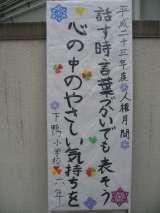 平成二十三年度人権月間
話す時言葉づかいでも表そう
心の中のやさしい気持ちを
下鴨小学校 六年